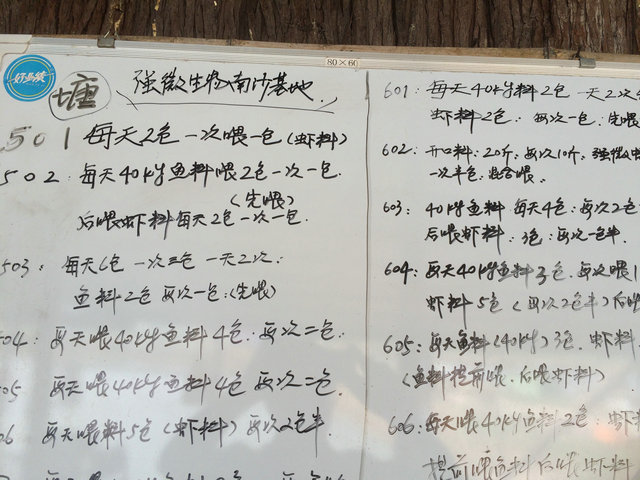 80×60
塘
强微生物南沙基地
501 每天2包一次喂一包(虾料)
502:每天40kg鱼料喂2包一次一包.
(先喂)
后喂虾料每天2包一次一包.
503:每天6包一次三包一天2次:
鱼料2包每次一包:(先喂)
504:每天喂40kg鱼料4包:每次二包.
05 每天喂40kg鱼料4包 每次二包.
06 每天喂料5包(虾料)每次2包半.
601:每天40kg料2包一天2次
虾料2包:每次一包.先喂
602:开口料:20斤:每次10斤,强微
一次半包:混合喂.
603:40kg鱼料 每天4包:每次2包
后喂虾料:3包:每次一包半.
604:每天40kg鱼料3包.每次喂1
虾料5包(每次2包半)后喂
605:每天鱼料(40kg)3包.虾料
(鱼料提前喂.后喂虾料)
606:每天喂40kg鱼料2包:虾
提前喂鱼料后喂虾料